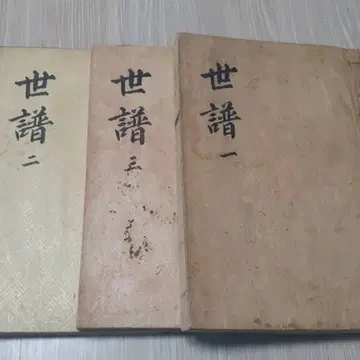 世譜 二
世譜 三
世譜 一